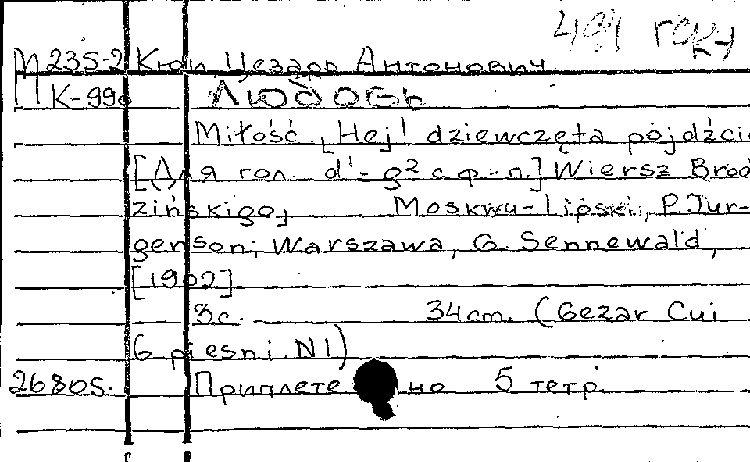 М 235-2 Кюи Цезарь Антонович
К-990 Любовь
Miłość „Hej! dziewczęta pójdźcie
[Для гол. d¹-g² с ф-п.] Wiersz Brod
zińskigo„ Moskwu-Lipsk, P. Jur-
genson; Warszawa, G. Sennewald,
[1902].
3с. 34 cm. (Cezar Cui
6 piesni. N1)
26805. Приплете но 5 тетр.